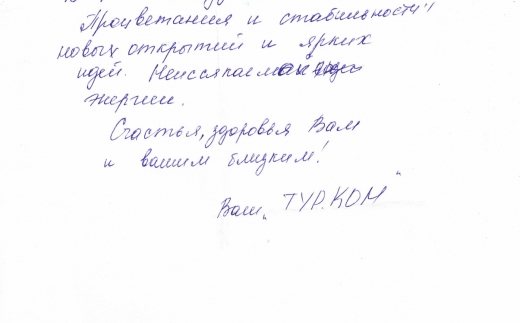 Процветания и стабильности,
новых открытий и ярких
идей. Неиссякаемой
энергии.
Счастья, здоровья Вам
и вашим близким!
Ваш „ТУР.КОМ"